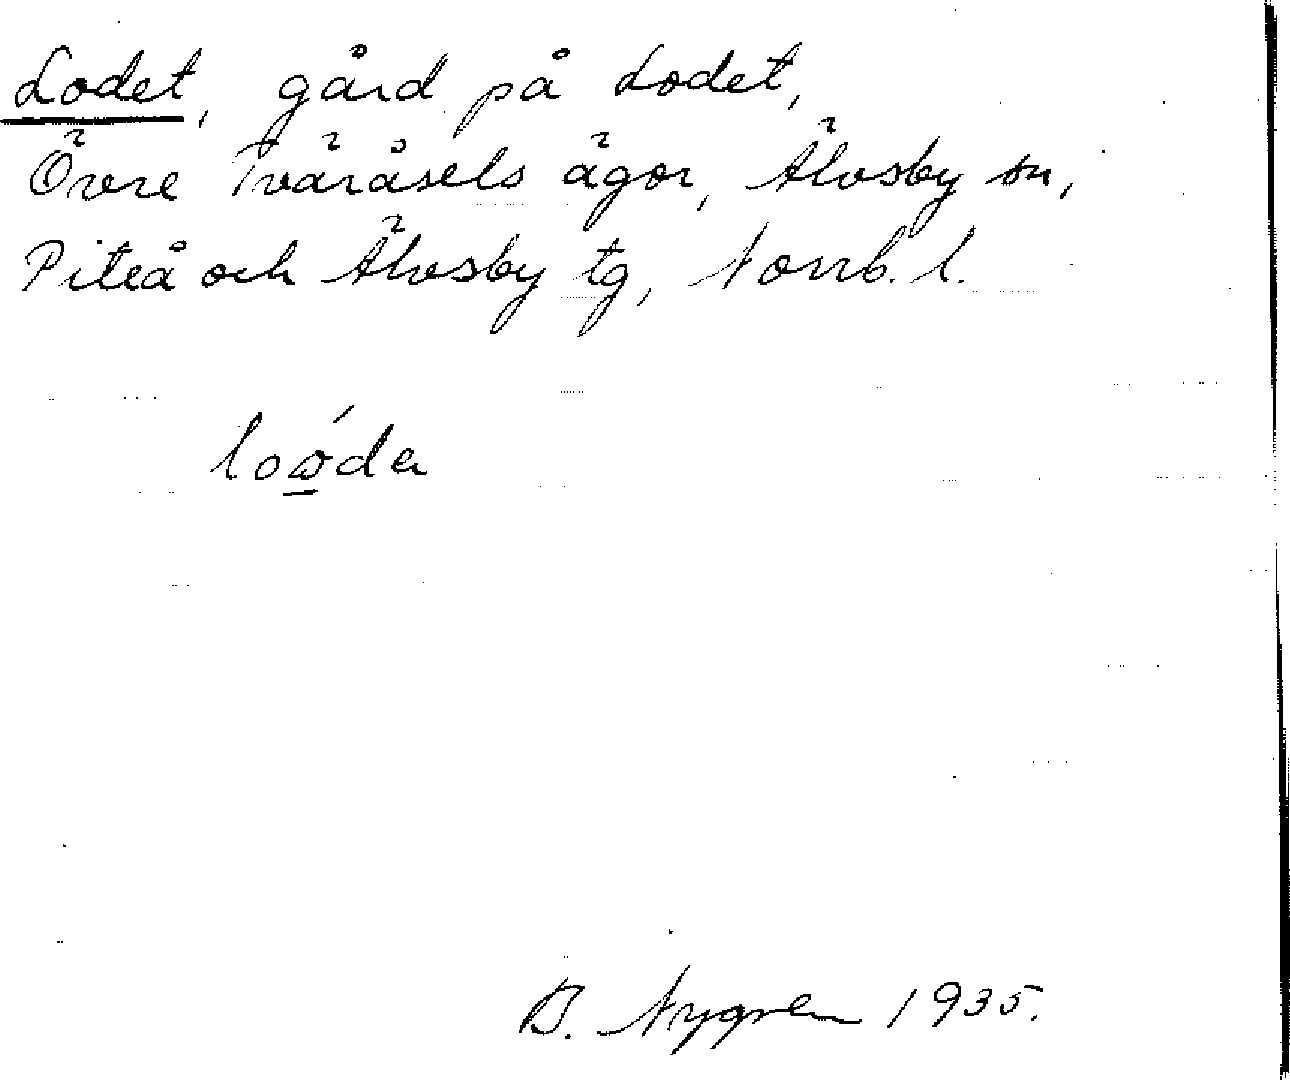 Lodet, gård på Lodet,
Övre Tväråsels ägor, Älvsby sn,
Piteå och Älvsby tg, Norrb. l.
B. Nygren 1935.